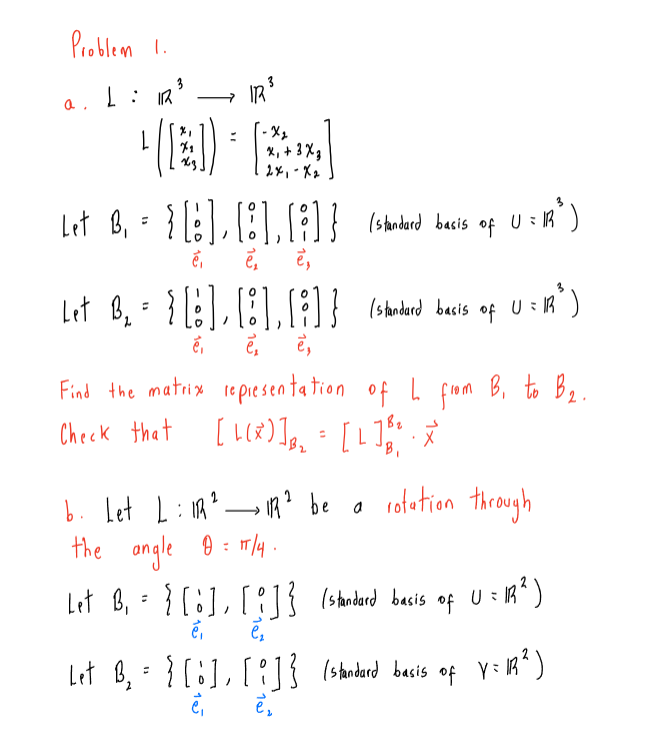 Problem 1.
a. L : ℝ³ ⟶ ℝ³
L([x₁ x₂ x₃]) = [-x₂ x₁ + 3x₃ 2x₁ - x₂]
Let B₁ = {[1 0 0], [0 1 0], [0 0 1]} (standard basis of U = ℝ³)
e⃗₁ e⃗₂ e⃗₃
Let B₂ = {[1 0 0], [0 1 0], [0 0 1]} (standard basis of U = ℝ³)
e⃗₁ e⃗₂ e⃗₃
Find the matrix representation of L from B₁ to B₂.
Check that [L(x⃗)]_B₂ = [L]_B₁^B₂ · x⃗
b. Let L : ℝ² ⟶ ℝ² be a rotation through
the angle θ = π/4.
Let B₁ = {[1 0], [0 1]} (standard basis of U = ℝ²)
e⃗₁ e⃗₂
Let B₂ = {[1 0], [0 1]} (standard basis of V = ℝ²)
e⃗₁ e⃗₂